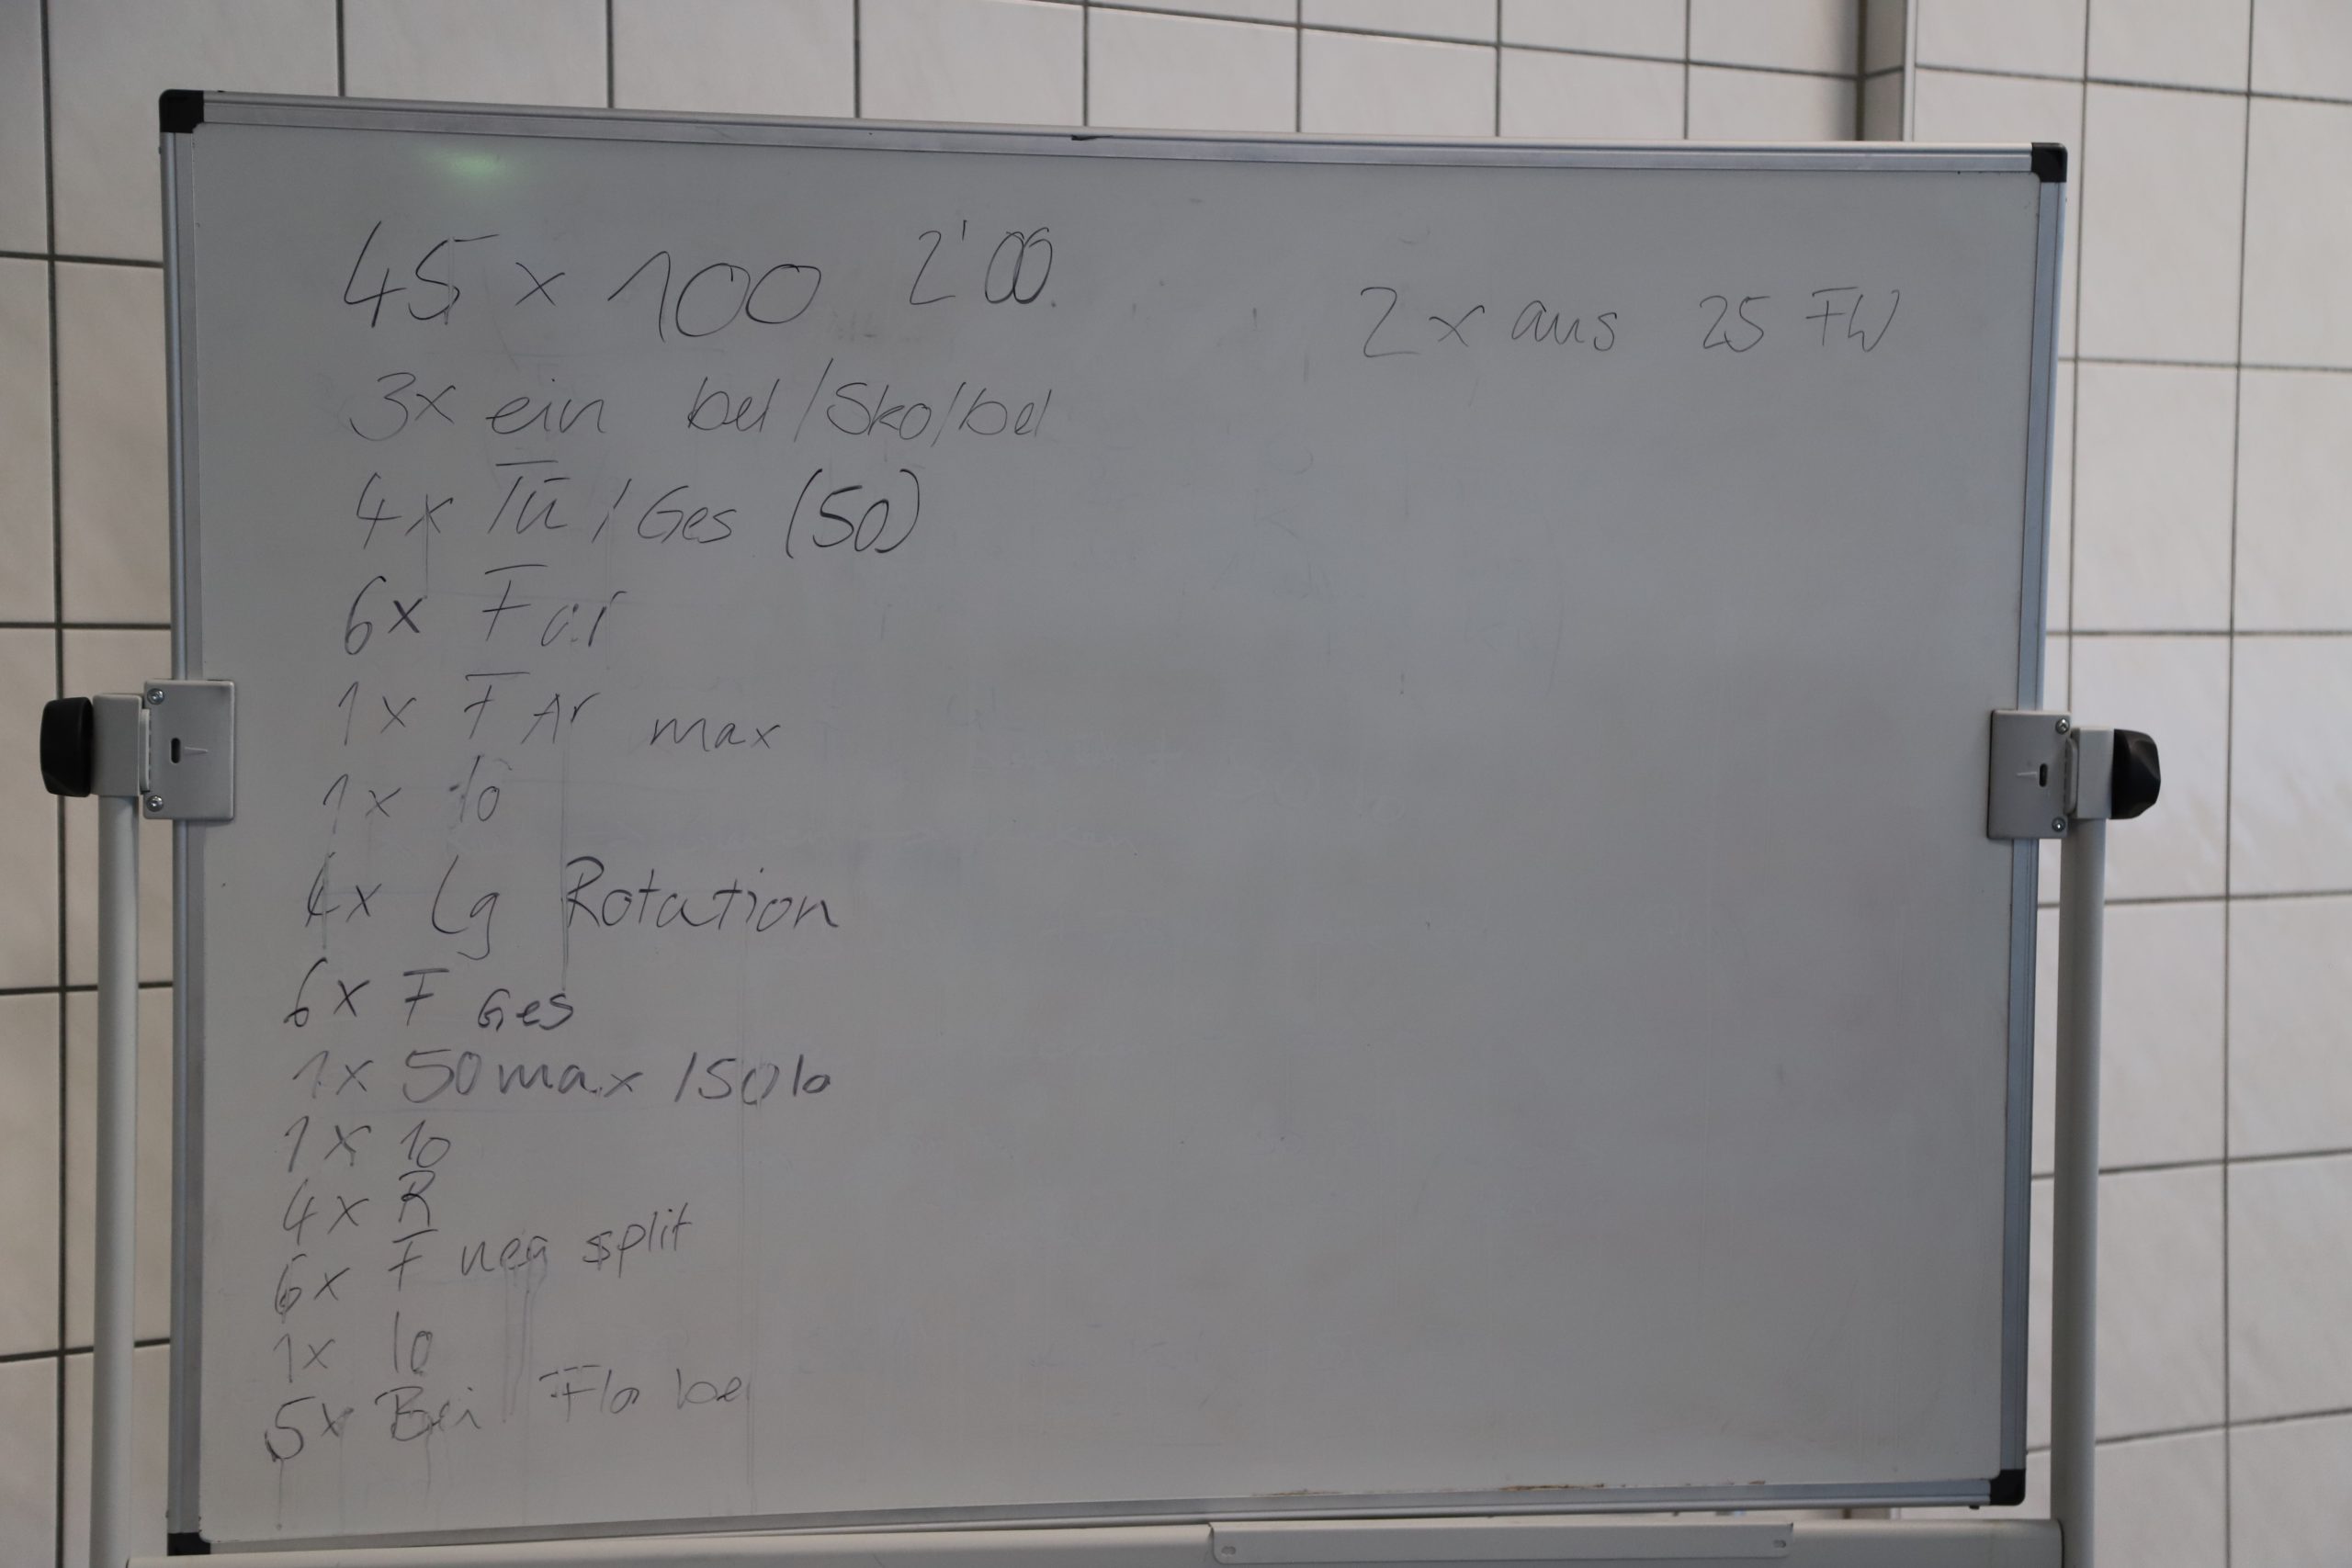 45 x 100 2'00
3x ein bel/Sko/bel
4x Tü / Ges (50)
6x F ar
1x F Ar max
1x lo
4x Lg Rotation
6x F Ges
1x 50 max /50 lo
1x lo
4x R
6x F neg split
1x lo
5x Bei Flo bel
2x aus 25 FW